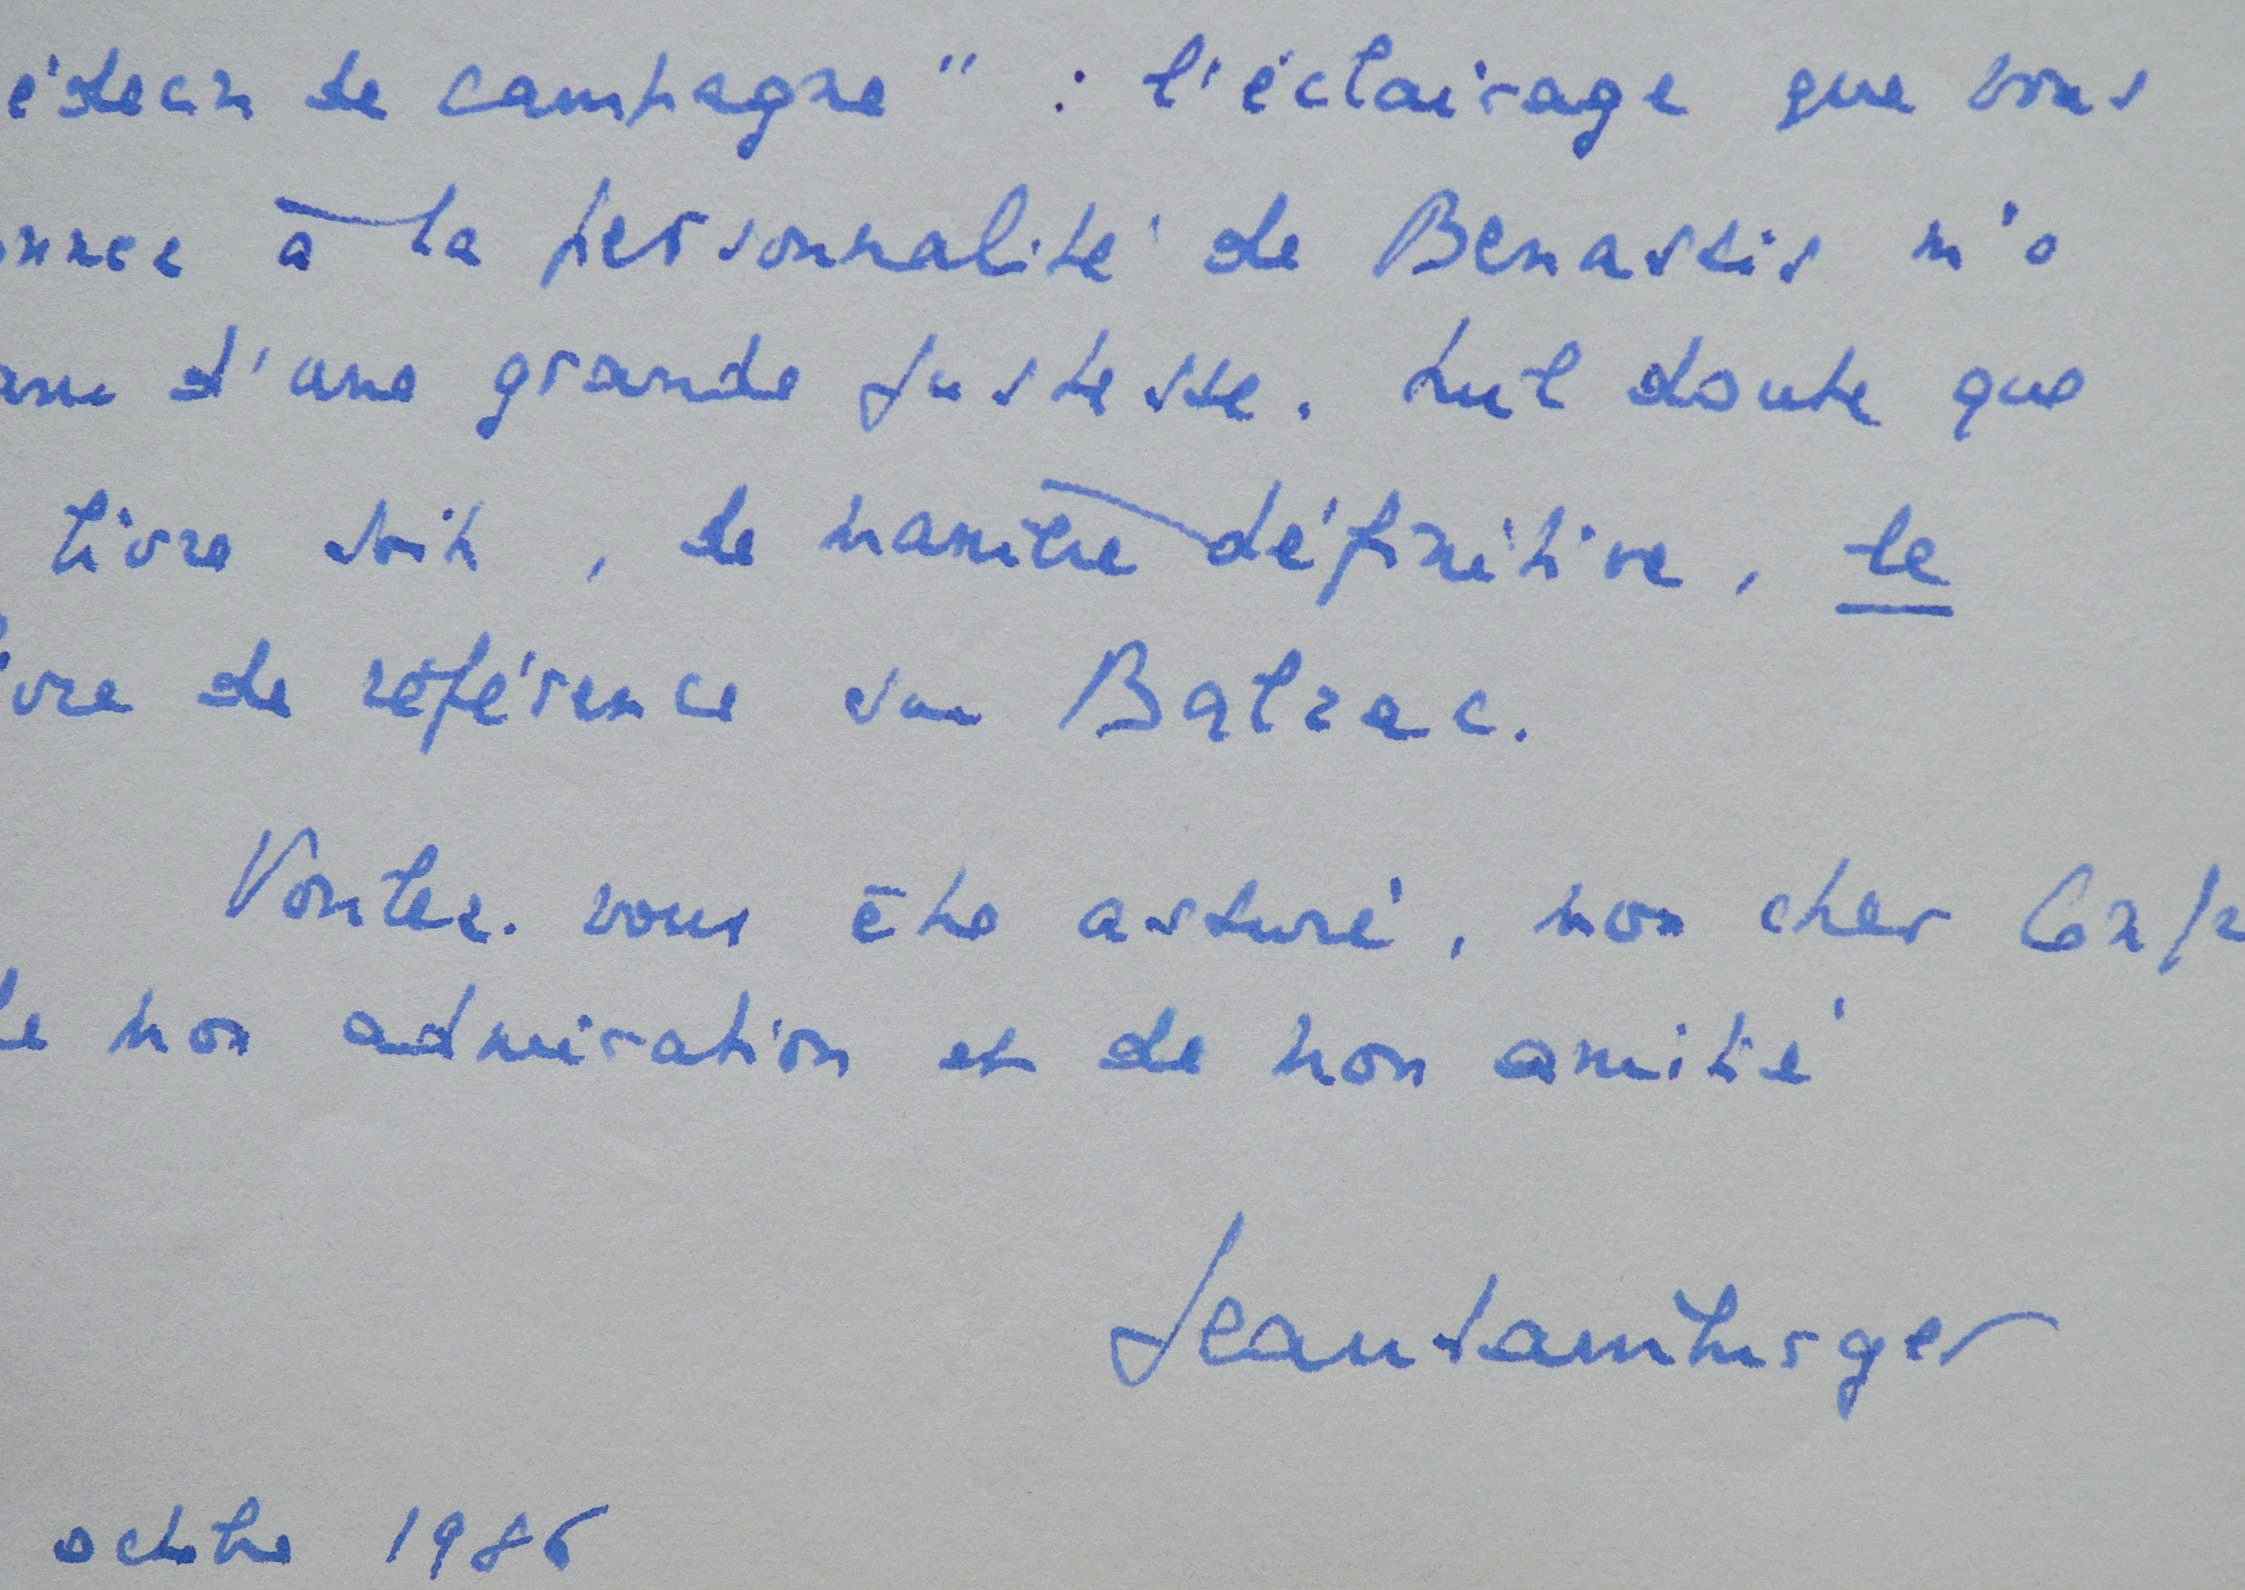 édecin de campagne" : l'éclairage que vous
onnez à la personnalité de Benassis m'a
d'une grande justesse. Nul doute que
livre soit, de manière définitive, le
ivre de référence sur Balzac.
Voulez-vous être assuré, mon cher
de mon admiration et de mon amitié
Jean Hamburger
octobre 1986